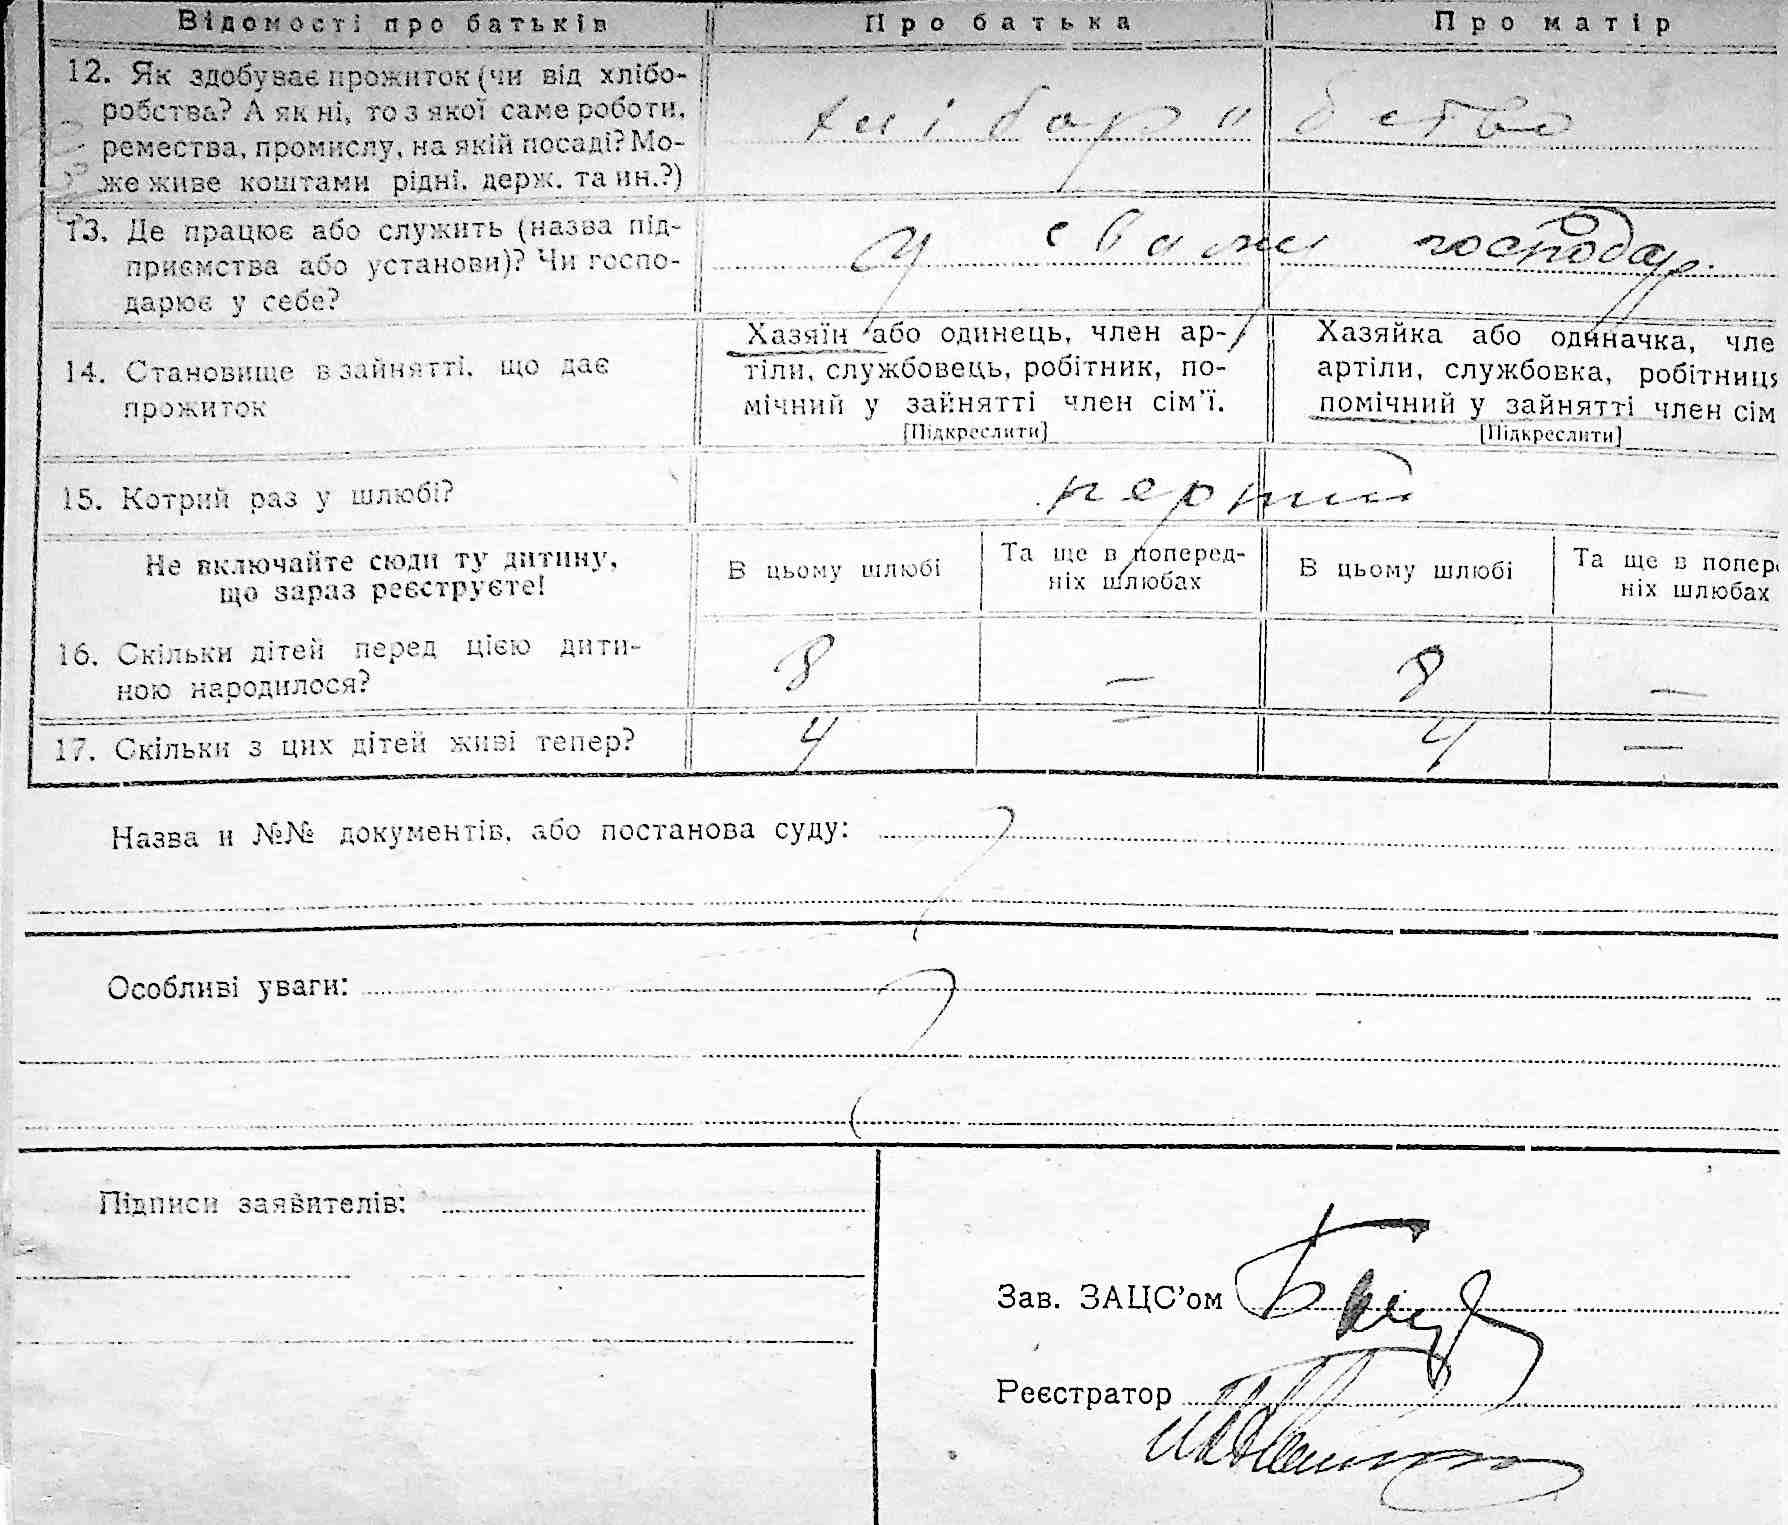 Відомості про батьків Про батька Про матір
12. Як здобуває прожиток (чи від хлібо-
робства? А як ні, то з якої саме роботи,
ремества, промислу, на якій посаді? Мо-
же живе коштами рідні, держ. та ин.?)
хлібар"бство
13. Де працює або служить (назва під-
приємства або установи)? Чи госпо-
дарює у себе?
у свому господар.
14. Становище в зайнятті, що дає
прожиток
Хазяїн або одинець, член ар-
тіли, службовець, робітник, по-
мічний у зайнятті член сім'ї.
[Підкреслити]
Хазяйка або одиначка, чле
артіли, службовка, робітниця
помічний у зайнятті член сім
[Підкреслити]
15. Котрий раз у шлюбі?
перший
Не включайте сюди ту дитину,
що зараз реєструєте!
В цьому шлюбі
Та ще в поперед-
ніх шлюбах
В цьому шлюбі
Та ще в попер
ніх шлюбах
16. Скільки дітей перед цією дити-
ною народилося?
8 — 8 —
17. Скільки з цих дітей живі тепер? 4 — 4 —
Назва и №№ документів, або постанова суду:
Особливі уваги:
Підписи заявителів:
Зав. ЗАЦС'ом
Реєстратор